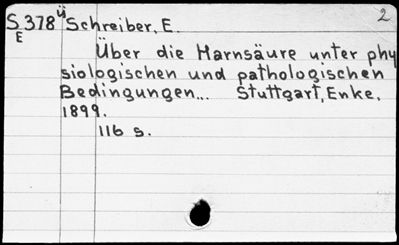 S 378 ü Schreiber, E. 2
E
Über die Harnsäure unter phy
siologischen und pathologischen
Bedingungen... Stuttgart, Enke,
1899.
116 s.